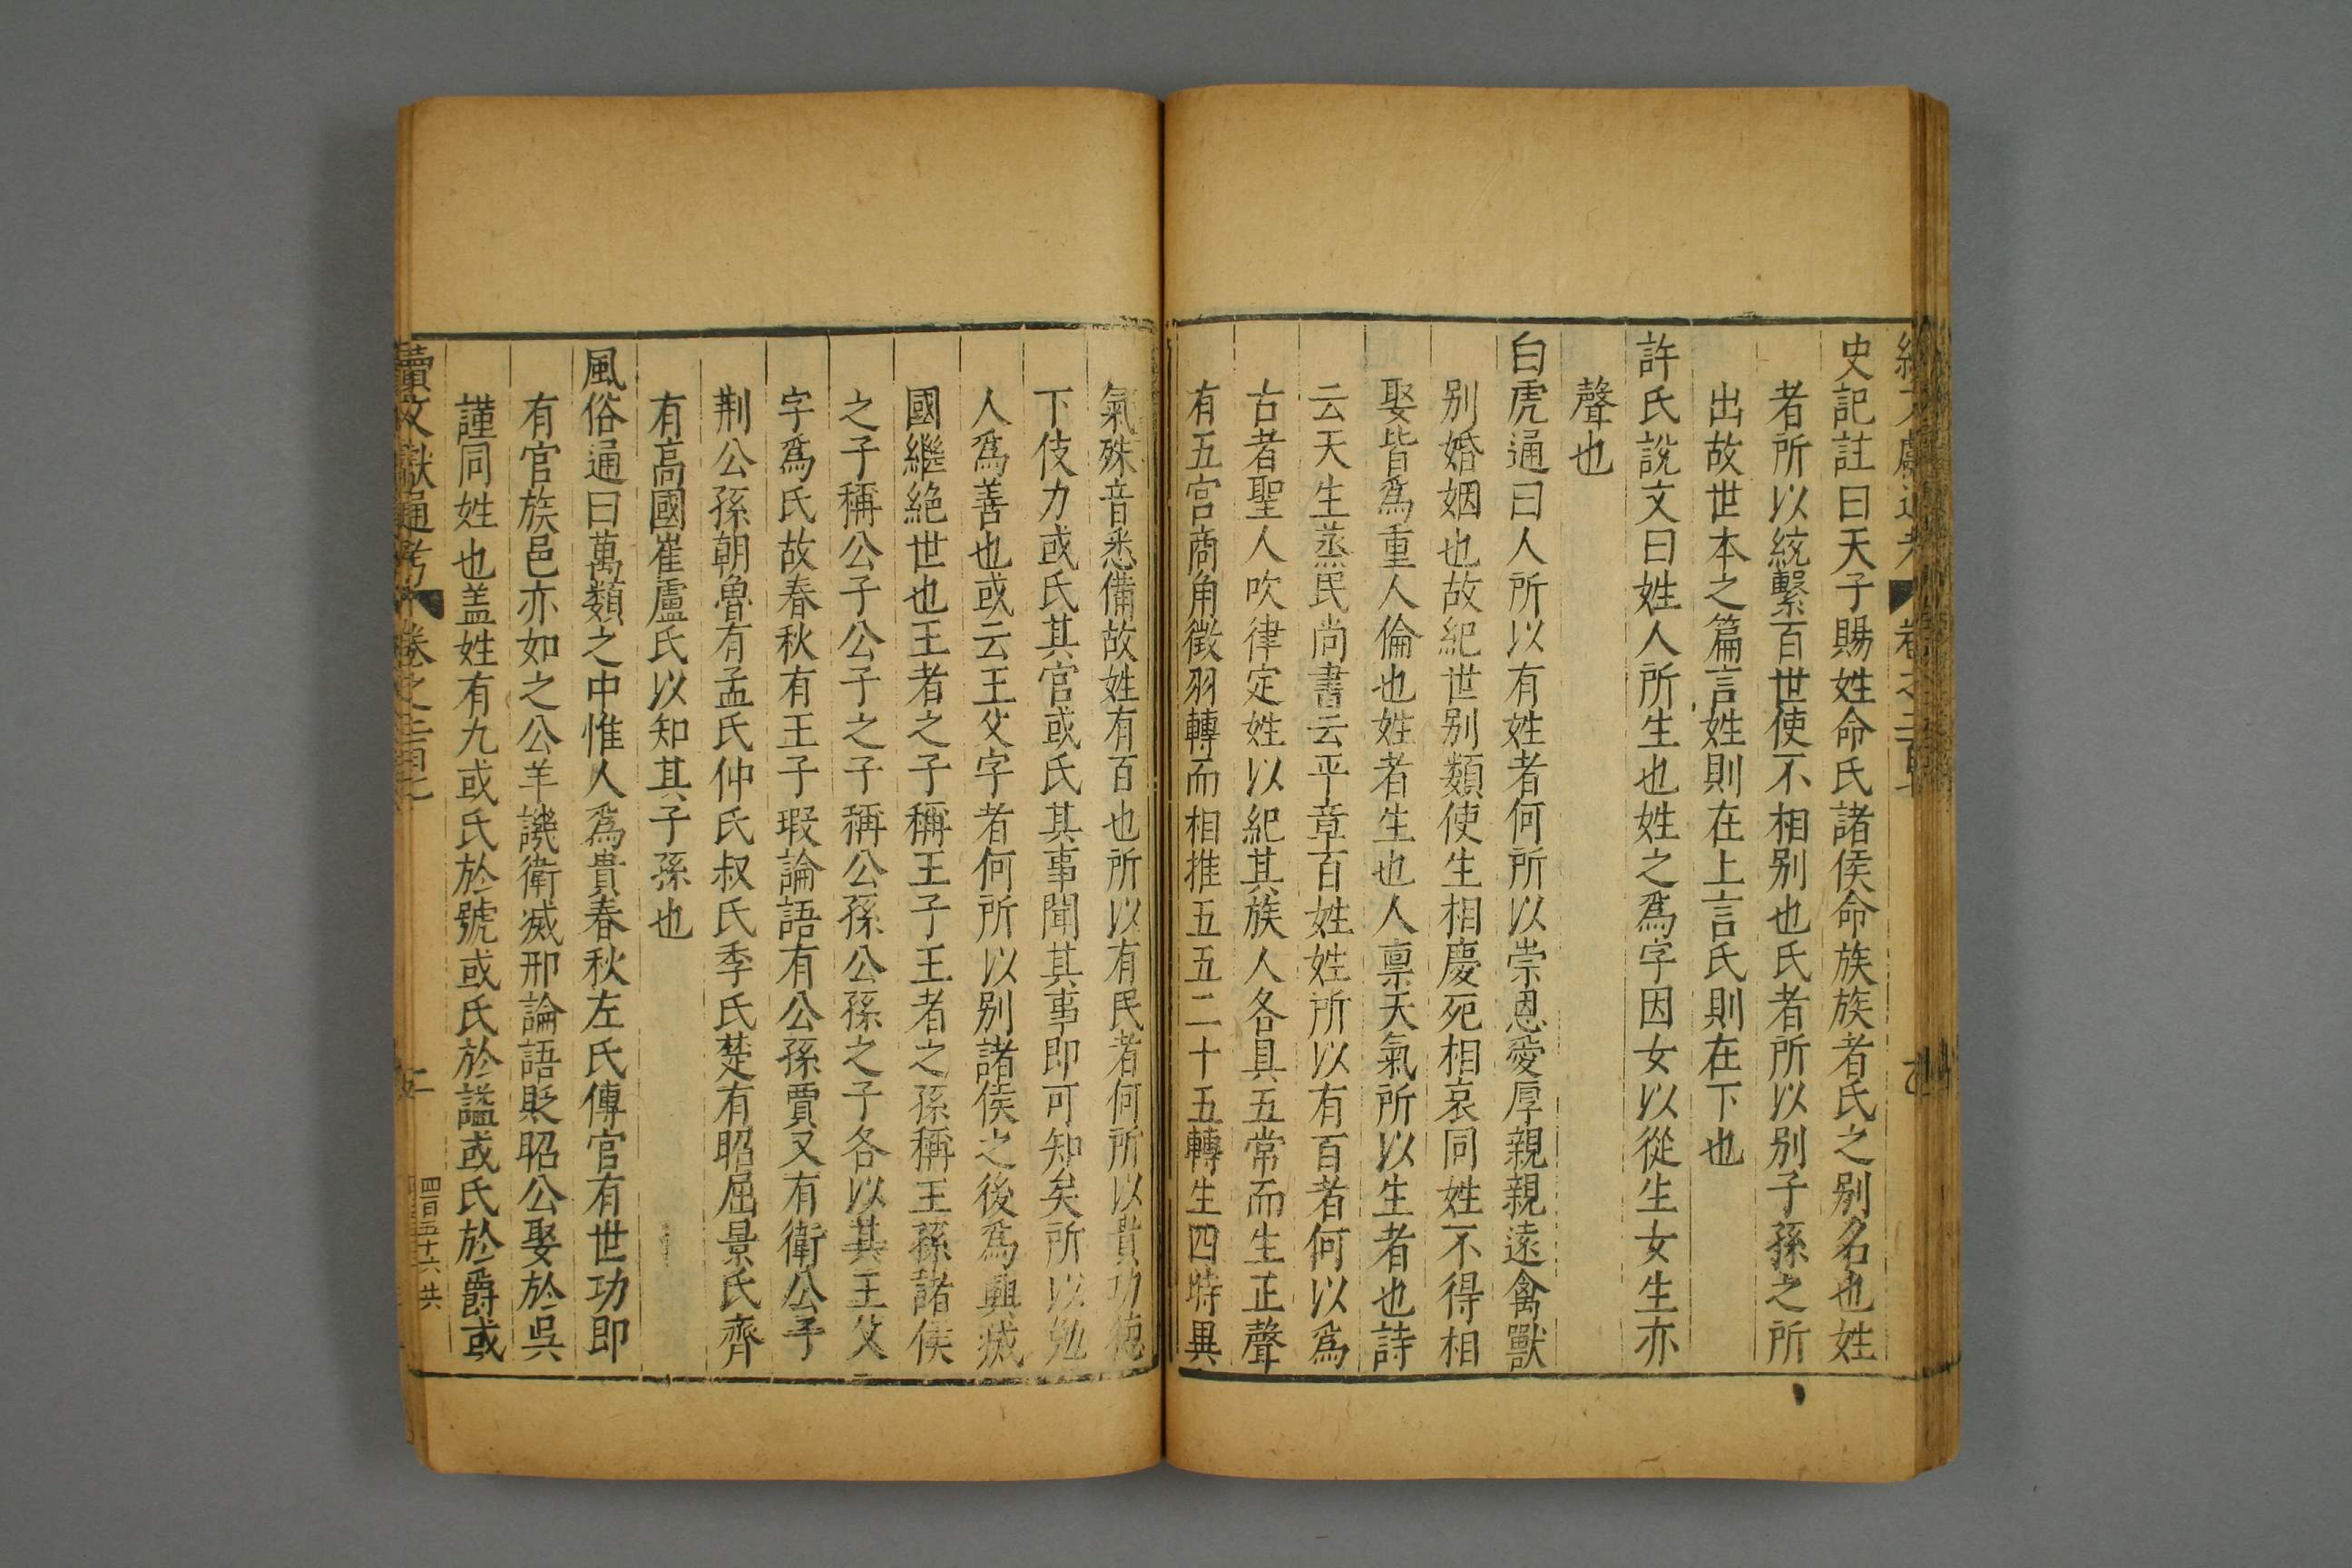 史記註曰天子賜姓命氏諸侯命族族者氏之别名也姓
者所以統繫百世使不相别也氏者所以别子孫之所
出故世本之篇言姓則在上言氏則在下也
許氏說文曰姓人所生也姓之爲字因女以從生女生亦
聲也
白虎通曰人所以有姓者何所以崇恩愛厚親親遠禽獸
别婚姻也故紀世别類使生相慶死相哀同姓不得相
娶皆爲重人倫也姓者生也人禀天氣所以生者也詩
云天生蒸民尚書云平章百姓姓所以有百者何以爲
古者聖人吹律定姓以紀其族人各具五常而生正聲
有五宫商角徵羽轉而相推五五二十五轉生四時異
氣殊音悉備故姓有百也所以有氏者何所以貴功德
下伎力或氏其官或氏其事聞其事即可知矣所以勉
人爲善也或云王父字者何所以别諸侯之後爲興滅
國繼絶世也王者之子稱王子王者之孫稱王孫諸侯
之子稱公子公子之子稱公孫公孫之子各以其王父
字爲氏故春秋有王子瑕論語有公孫賈又有衛公子
荆公孫朝魯有孟氏仲氏叔氏季氏楚有昭屈景氏齊
有高國崔盧氏以知其子孫也
風俗通曰萬類之中惟人爲貴春秋左氏傳官有世功即
有官族邑亦如之公羊譏衛滅邢論語貶昭公娶於吳
謹同姓也盖姓有九或氏於號或氏於謚或氏於爵或
續文獻通考 卷之二百七 二 四百五十六 共